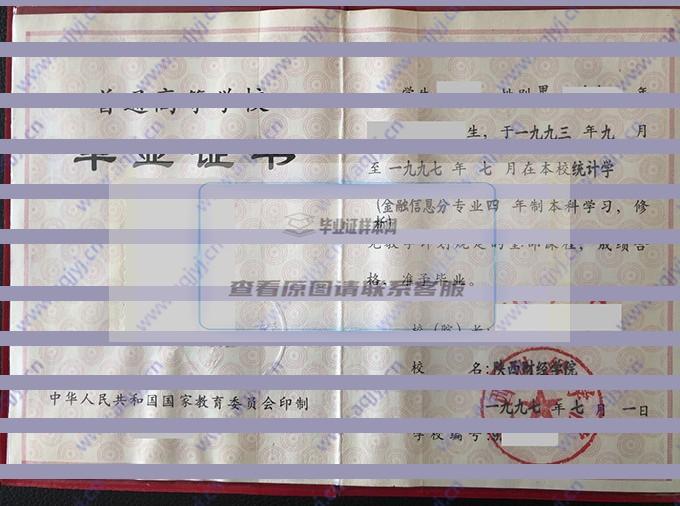 普通高等学校
毕业证书
中华人民共和国国家教育委员会印制
学生 性别男 年
生，于一九九三 年九 月
至一九九七 年 七 月在本校统计学
(金融信息分专业四 年制本科学习，修
析)
完教学计划规定的全部课程，成绩合
格，准予毕业。
校（院）长:
校 名:陕西财经学院
一九九七 年 七 月 一日
学校编号:
毕业证样本网
查看原图请联系客服